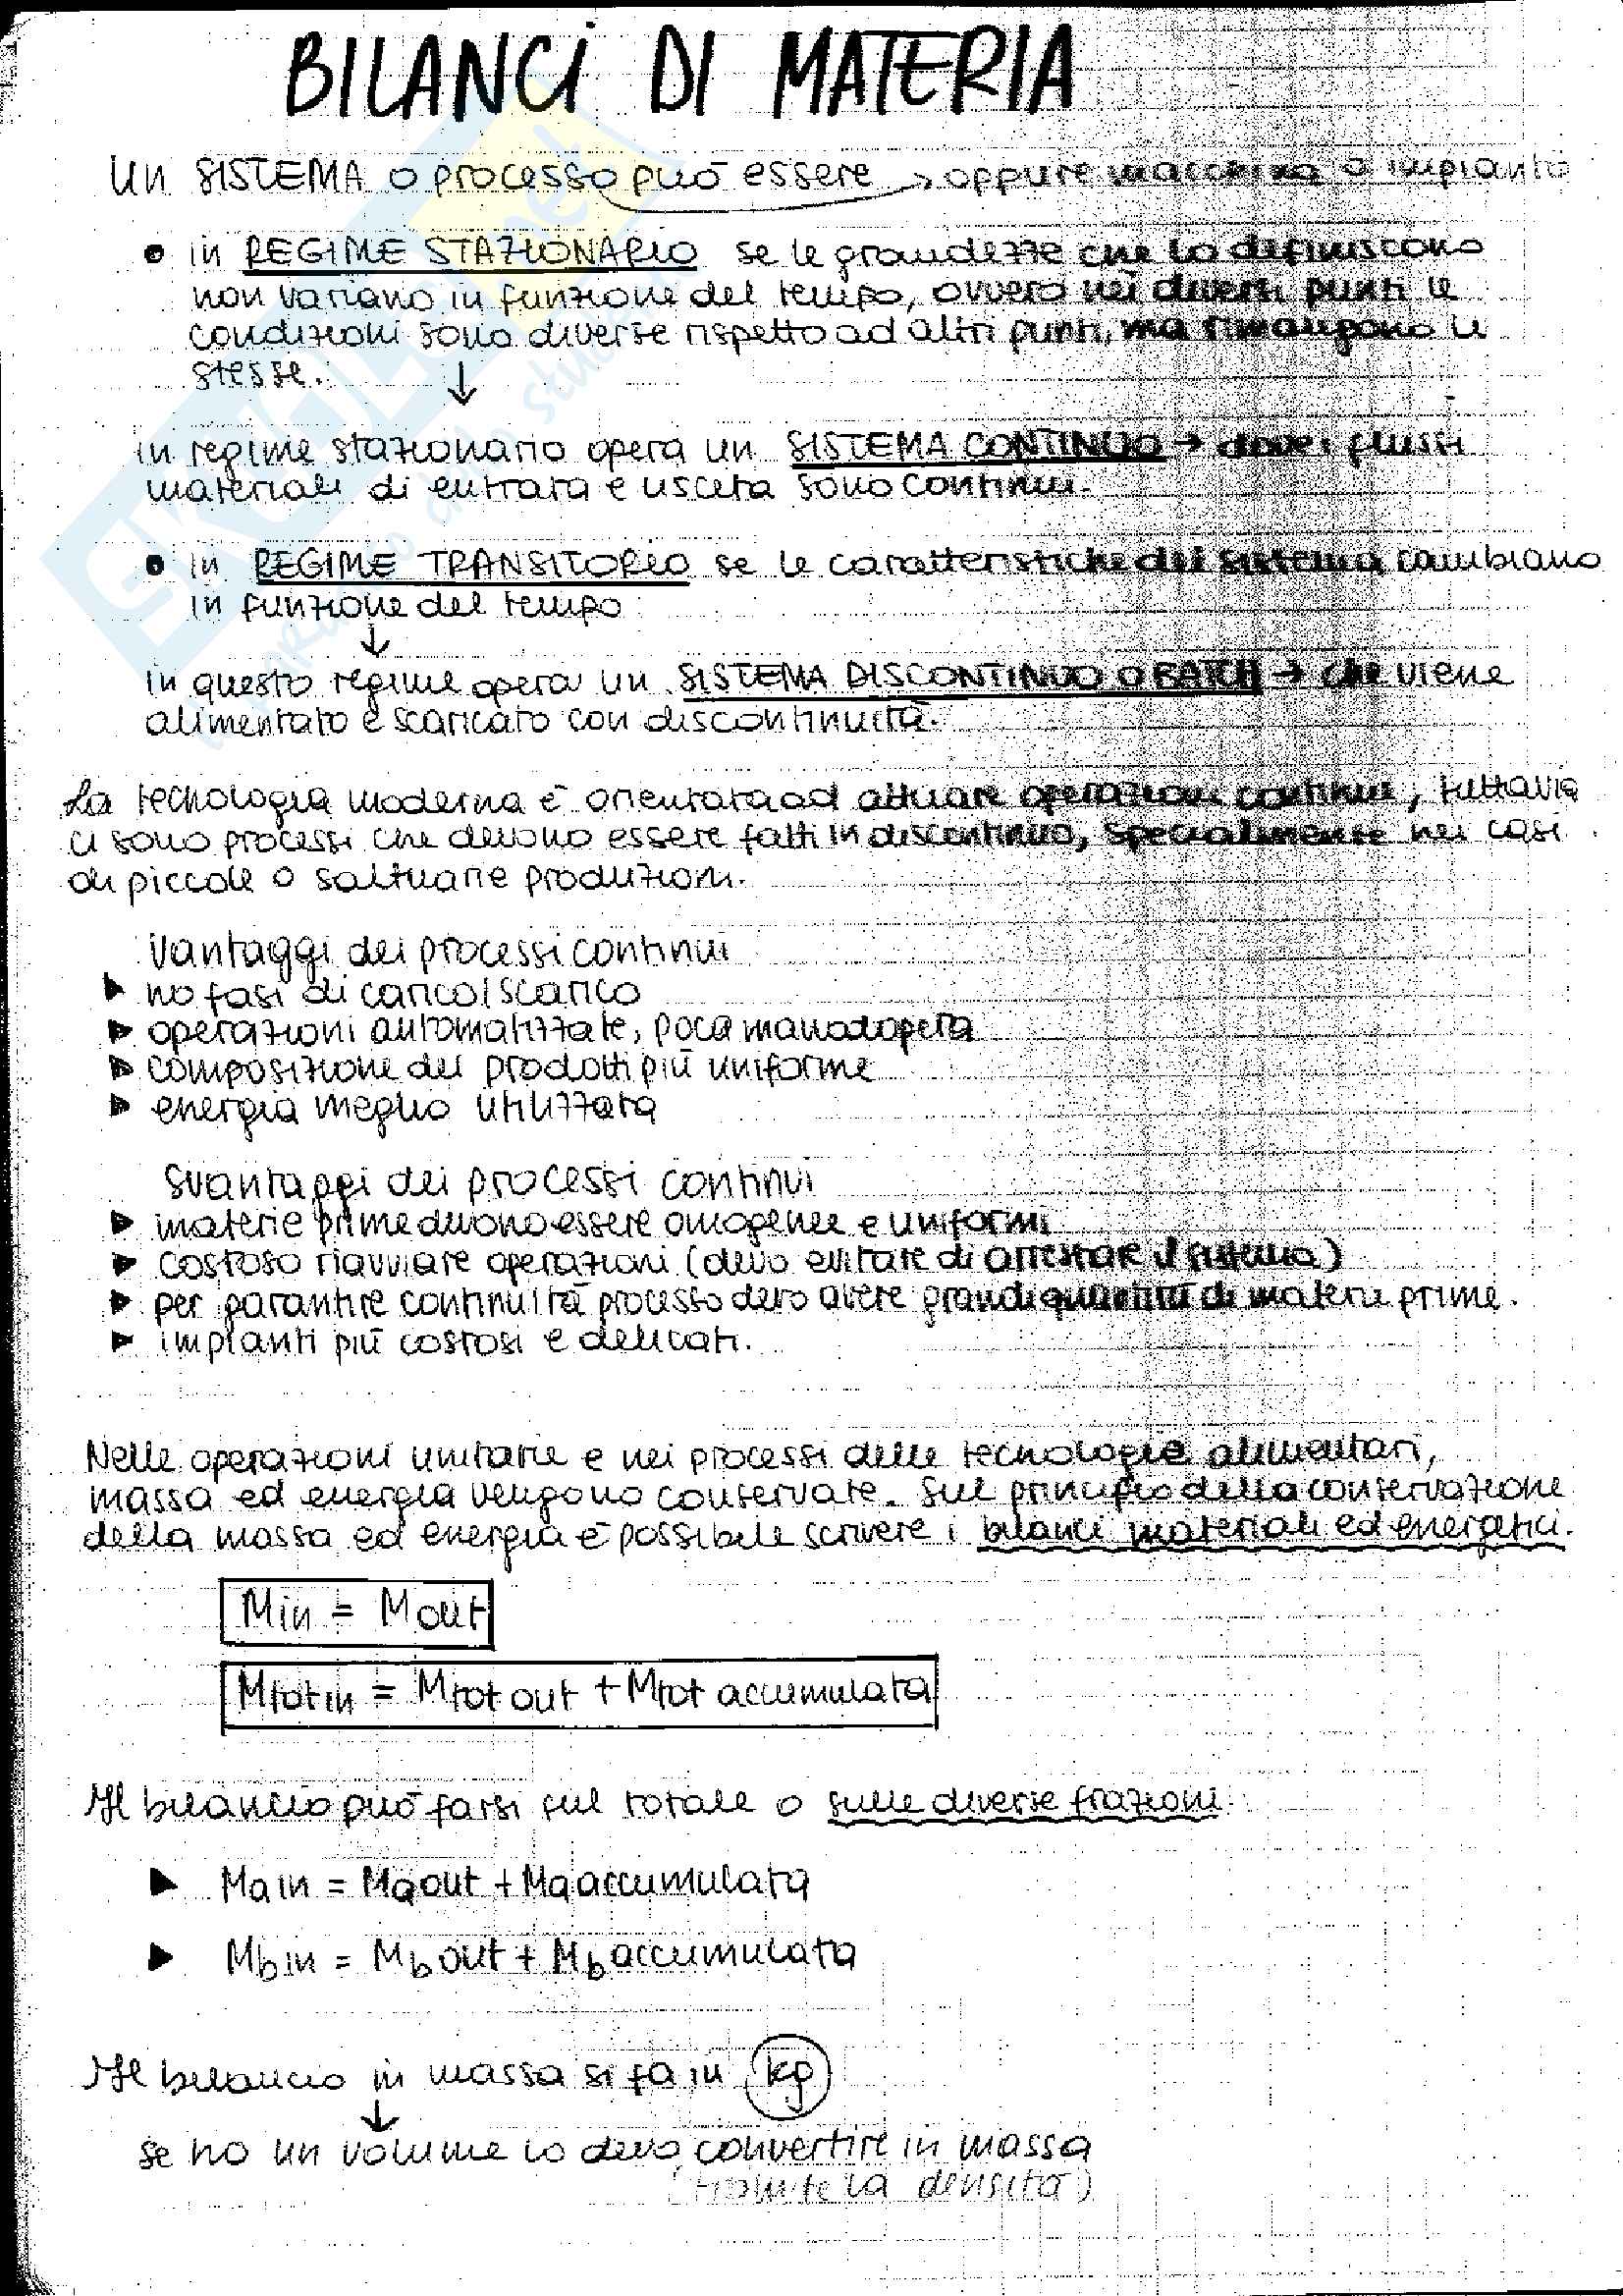 BILANCI DI MATERIA
Un SISTEMA o processo può essere → oppure macchina o impianto
• in REGIME STAZIONARIO se le grandezze che lo definiscono
non variano in funzione del tempo, ovvero nei diversi punti le
condizioni sono diverse rispetto ad altri punti, ma rimangono le
stesse.
↓
In regime stazionario opera un SISTEMA CONTINUO → dove i flussi
materiali di entrata e uscita sono continui.
• in REGIME TRANSITORIO se le caratteristiche del sistema cambiano
in funzione del tempo
↓
In questo regime opera un SISTEMA DISCONTINUO O BATCH → che viene
alimentato e scaricato con discontinuità.
La tecnologia moderna è orientata ad attuare operazioni continue, tuttavia
ci sono processi che devono essere fatti in discontinuo, specialmente nei casi
di piccole o saltuarie produzioni.
Vantaggi dei processi continui
▶ no fasi di carico/scarico
▶ operazioni automatizzate, poca manodopera
▶ composizione dei prodotti più uniforme
▶ energia meglio utilizzata
Svantaggi dei processi continui
▶ materie prime devono essere omogenee e uniformi
▶ costoso riavviare operazioni (devo evitare di arrestare il sistema)
▶ per garantire continuità processo devo avere grandi quantità di materie prime.
▶ impianti più costosi e delicati.
Nelle operazioni unitarie e nei processi delle tecnologie alimentari,
massa ed energia vengono conservate. Sul principio della conservazione
della massa ed energia è possibile scrivere i bilanci materiali ed energetici.
Min = Mout
Mtot in = Mtot out + Mtot accumulata
Il bilancio può farsi sul totale o sulle diverse frazioni.
▶ Ma in = Ma out + Ma accumulata
▶ Mb in = Mb out + Mb accumulata
Il bilancio in massa si fa in kg
↓
se ho un volume lo devo convertire in massa
(tramite la densità)